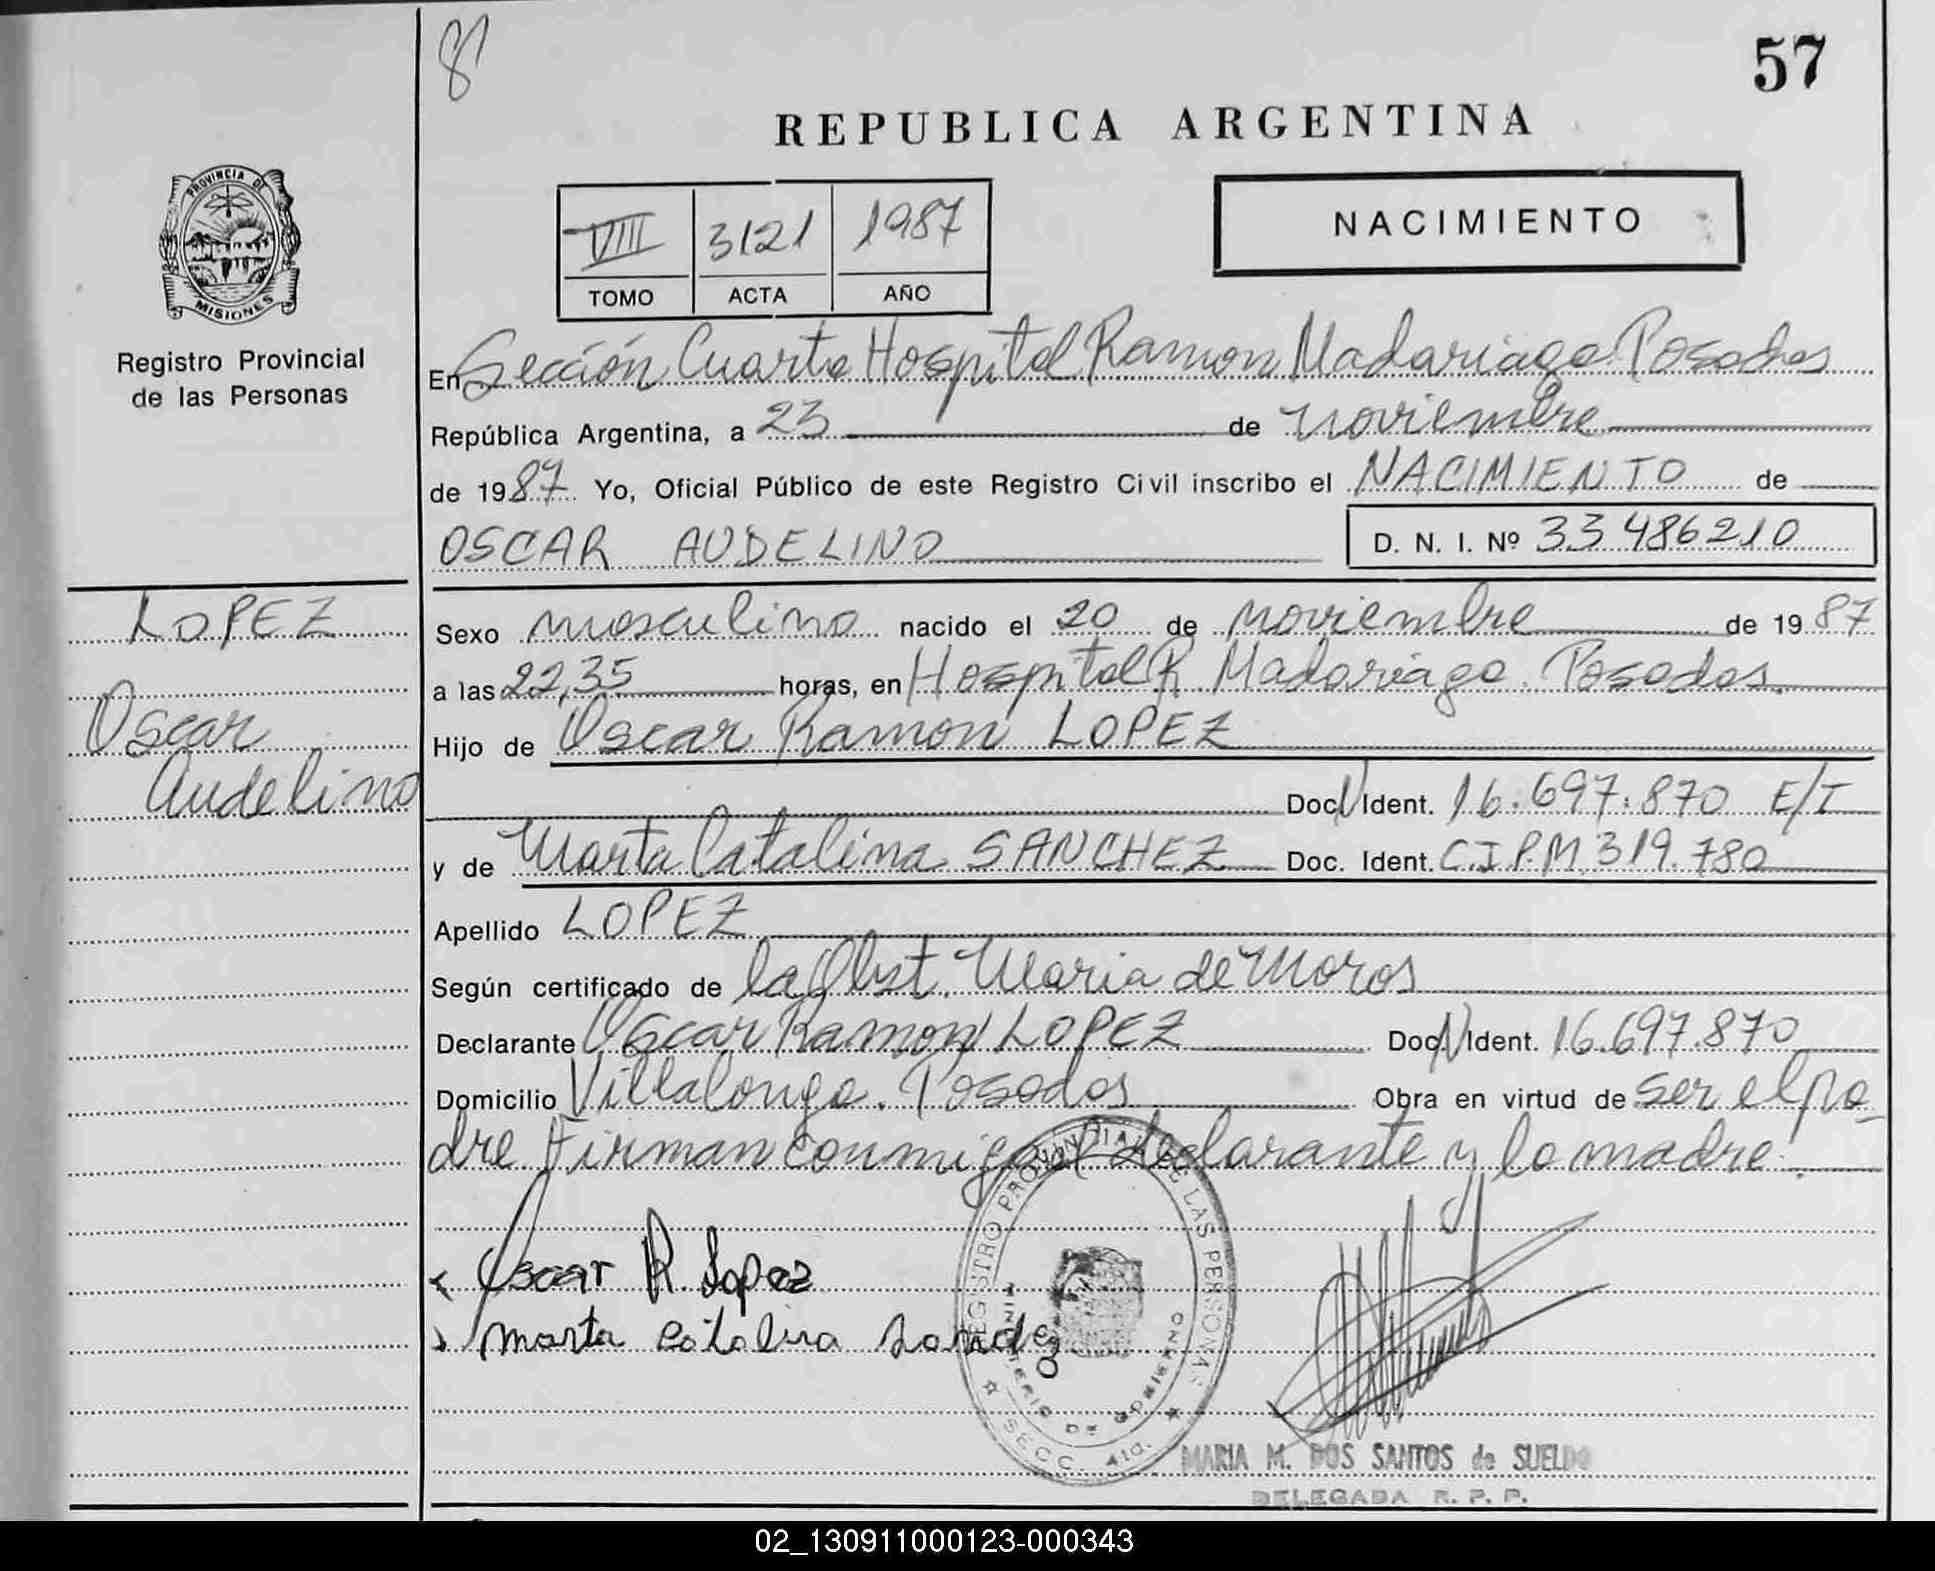 8
57
REPUBLICA ARGENTINA
PROVINCIA DE
MISIONES
Registro Provincial
de las Personas
VIII 3121 1987
TOMO ACTA AÑO
NACIMIENTO
En Sección Cuarta Hospital Ramon Madariaga Posadas
República Argentina, a 23 de noviembre
de 1987 Yo, Oficial Público de este Registro Civil inscribo el NACIMIENTO de
OSCAR AUDELINO D. N. I. Nº 33486210
LOPEZ
Oscar
Audelino
Sexo masculino nacido el 20 de noviembre de 1987
a las 22,35 horas, en Hospital R. Madariaga. Posadas.
Hijo de Oscar Ramon LOPEZ
Doc. N Ident. 16.697.870 E/T
y de Marta Catalina SANCHEZ Doc. Ident. C.I.P.M. 319.780
Apellido LOPEZ
Según certificado de la Obst. Maria de Moros
Declarante Oscar Ramon LOPEZ Doc. N Ident. 16.697.870
Domicilio Villalonga. Posadas Obra en virtud de ser el pa-
dre Firman conmigo el declarante y la madre.
Oscar R. Lopez
Marta Catalina Sanchez
REGISTRO PROVINCIAL DE LAS PERSONAS
MINISTERIO DE GOBIERNO
SECC. 4ta.
MARIA M. DOS SANTOS de SUELDO
DELEGADA R. P. P.
02_130911000123-000343